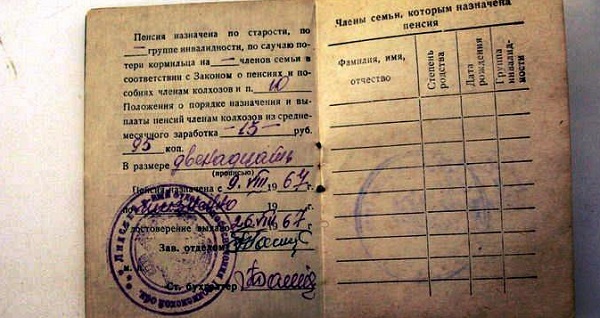 Пенсия назначена по старости, по
— группе инвалидности, по случаю по-
тери кормильца на — членов семьи в
соответствии с Законом о пенсиях и по-
собиях членам колхозов и п. 10
Положения о порядке назначения и вы-
платы пенсий членам колхозов из средне-
месячного заработка —15— руб.
95 коп.
В размере двенадцать
(прописью)
Пенсия назначена с 9.VIII 1967 г.
по 19 г.
достоверение выдано 26.VIII 1967 г.
Зав. отделом
Ст. бухгалтер
Члены семьи, которым назначена
пенсия
Фамилия, имя,
отчество
Степень
родства
Дата
рождения
Группа
инвалид-
ности